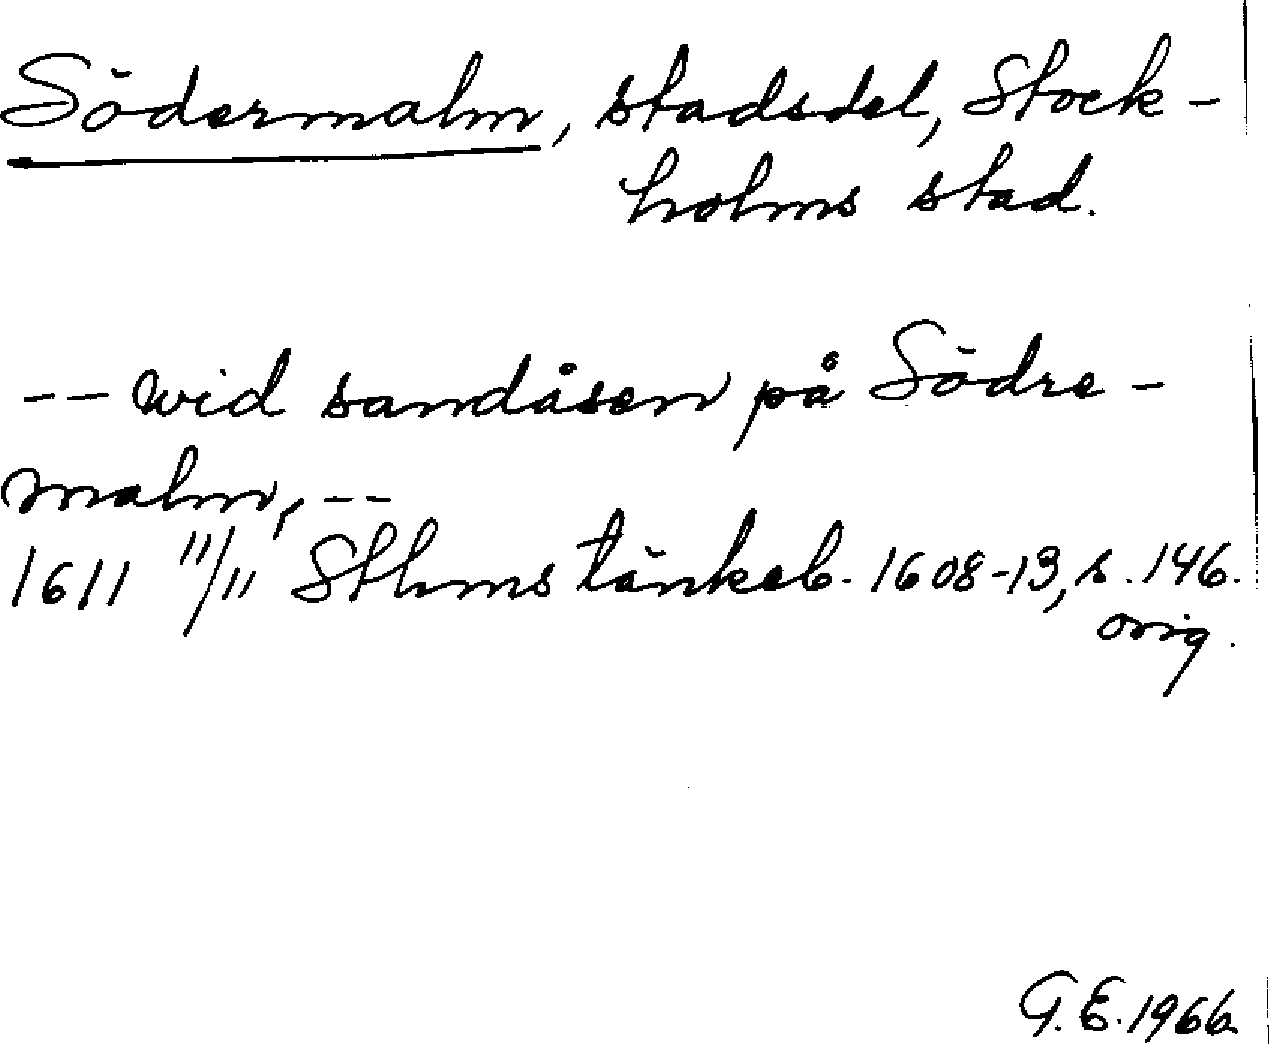 Södermalm, stadsdel, Stock-
holms stad.
-- wid sandåsen på Södre-
malm, --
1611 11/11 Sthms tänkeb. 1608-13, s. 146.
orig.
G.E. 1966